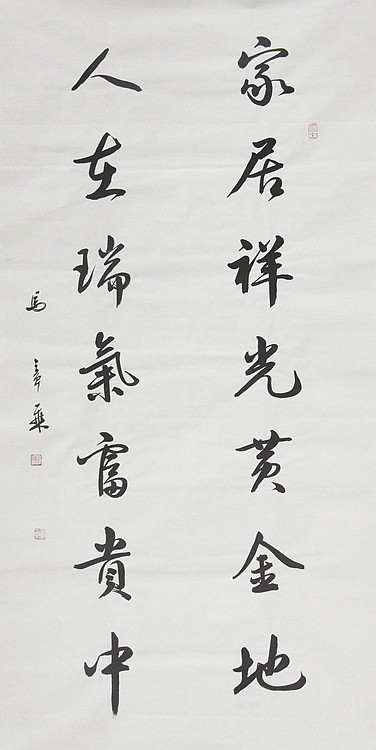 家居祥光黄金地
人在瑞氣富貴中
馬
華